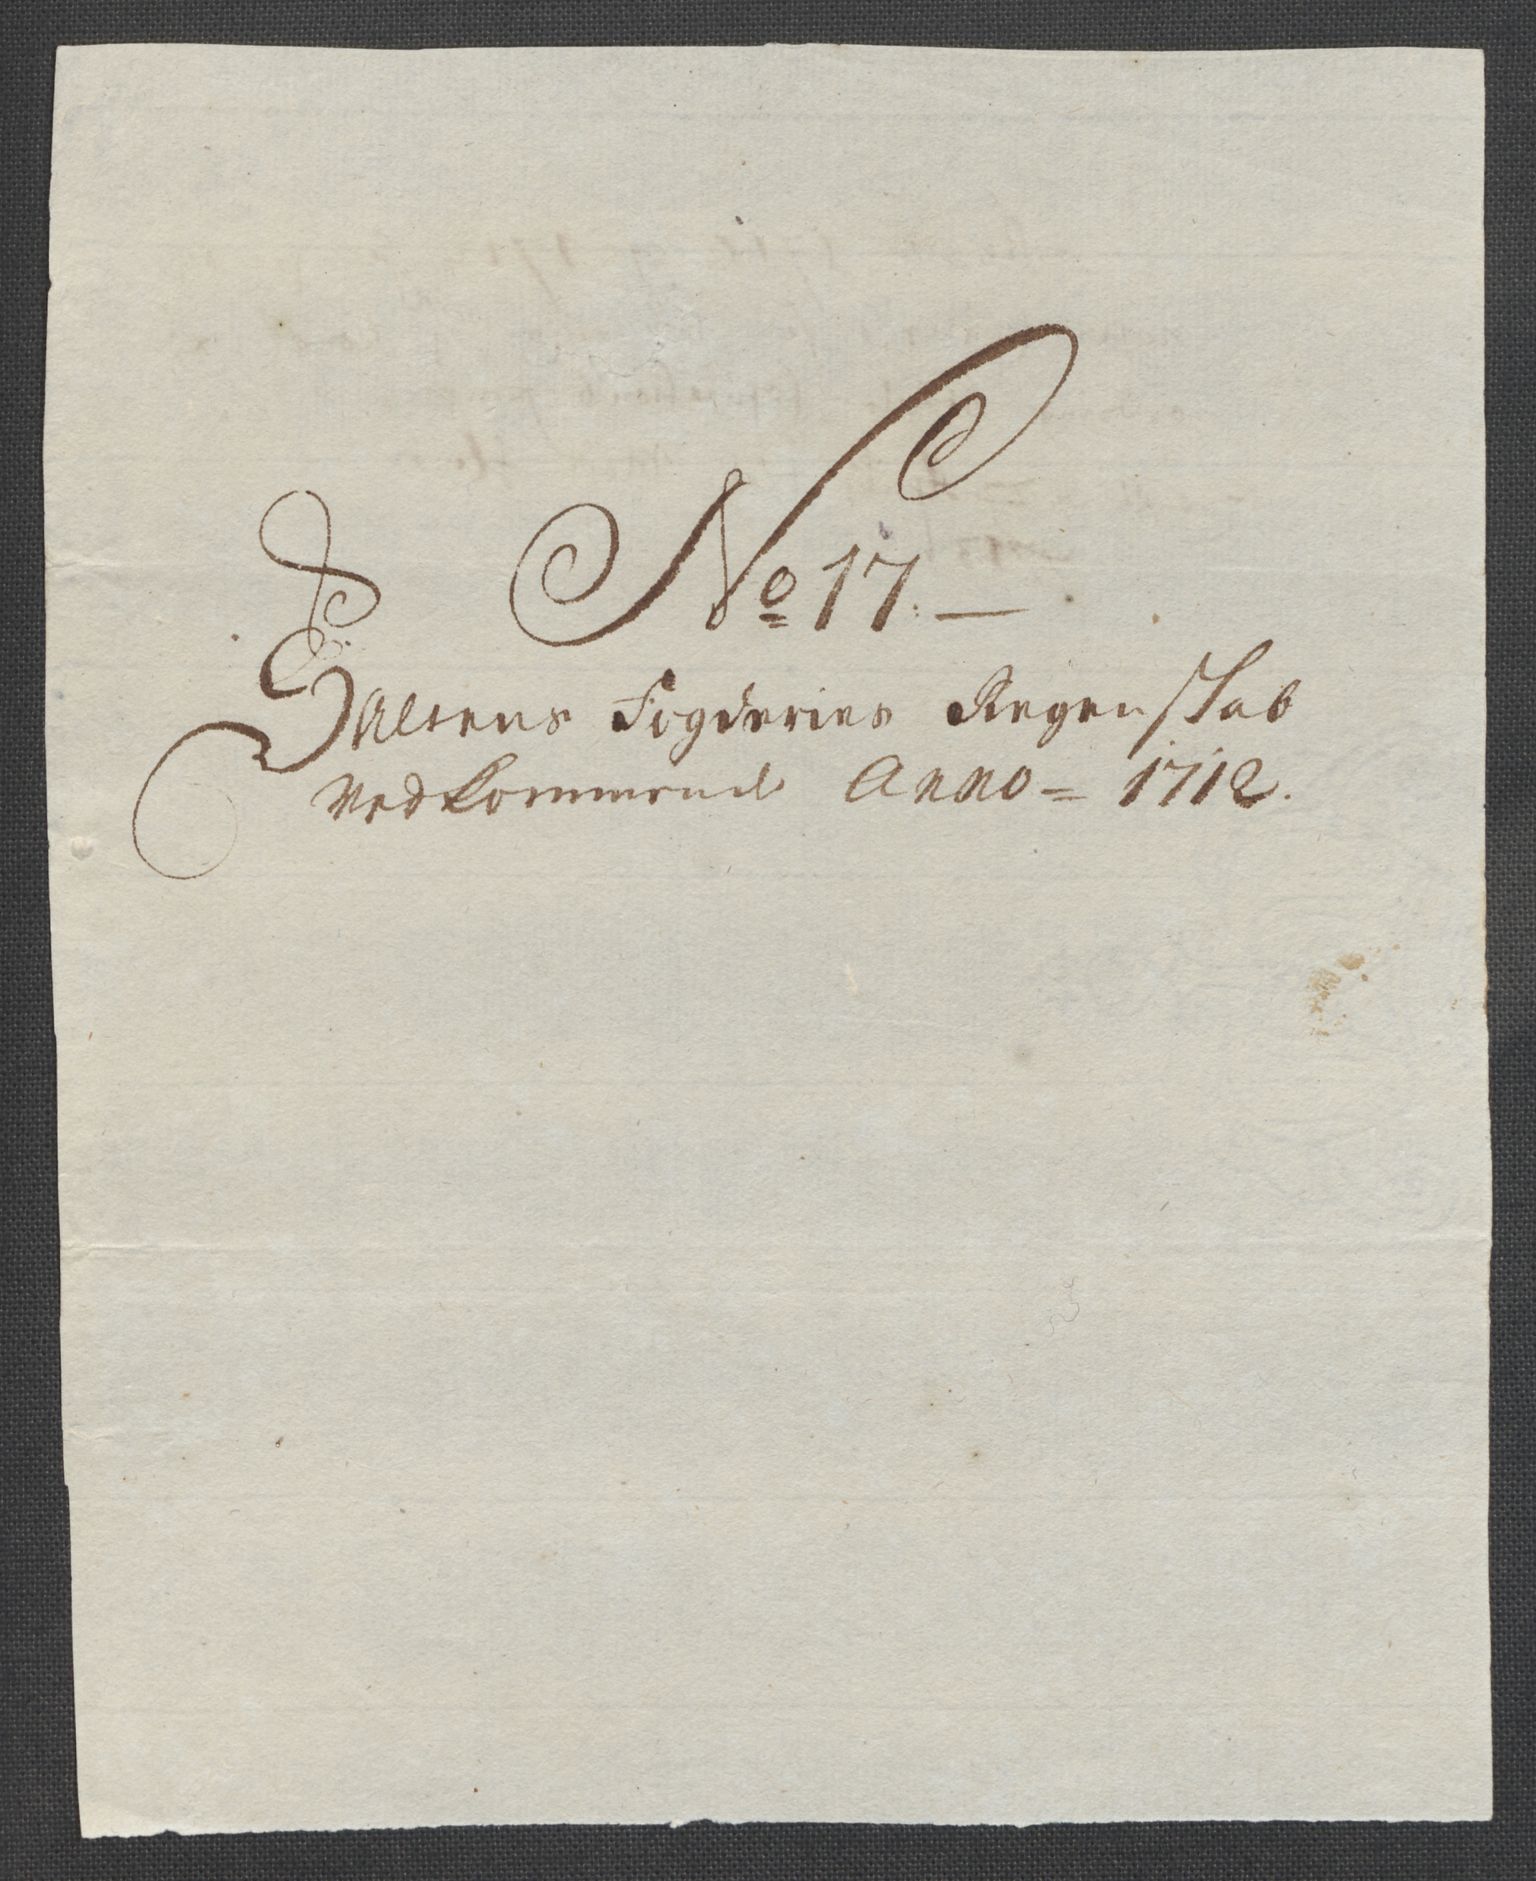 No 17. —
Saltens Fogderies Regenskab
Vedkommende Anno = 1712.